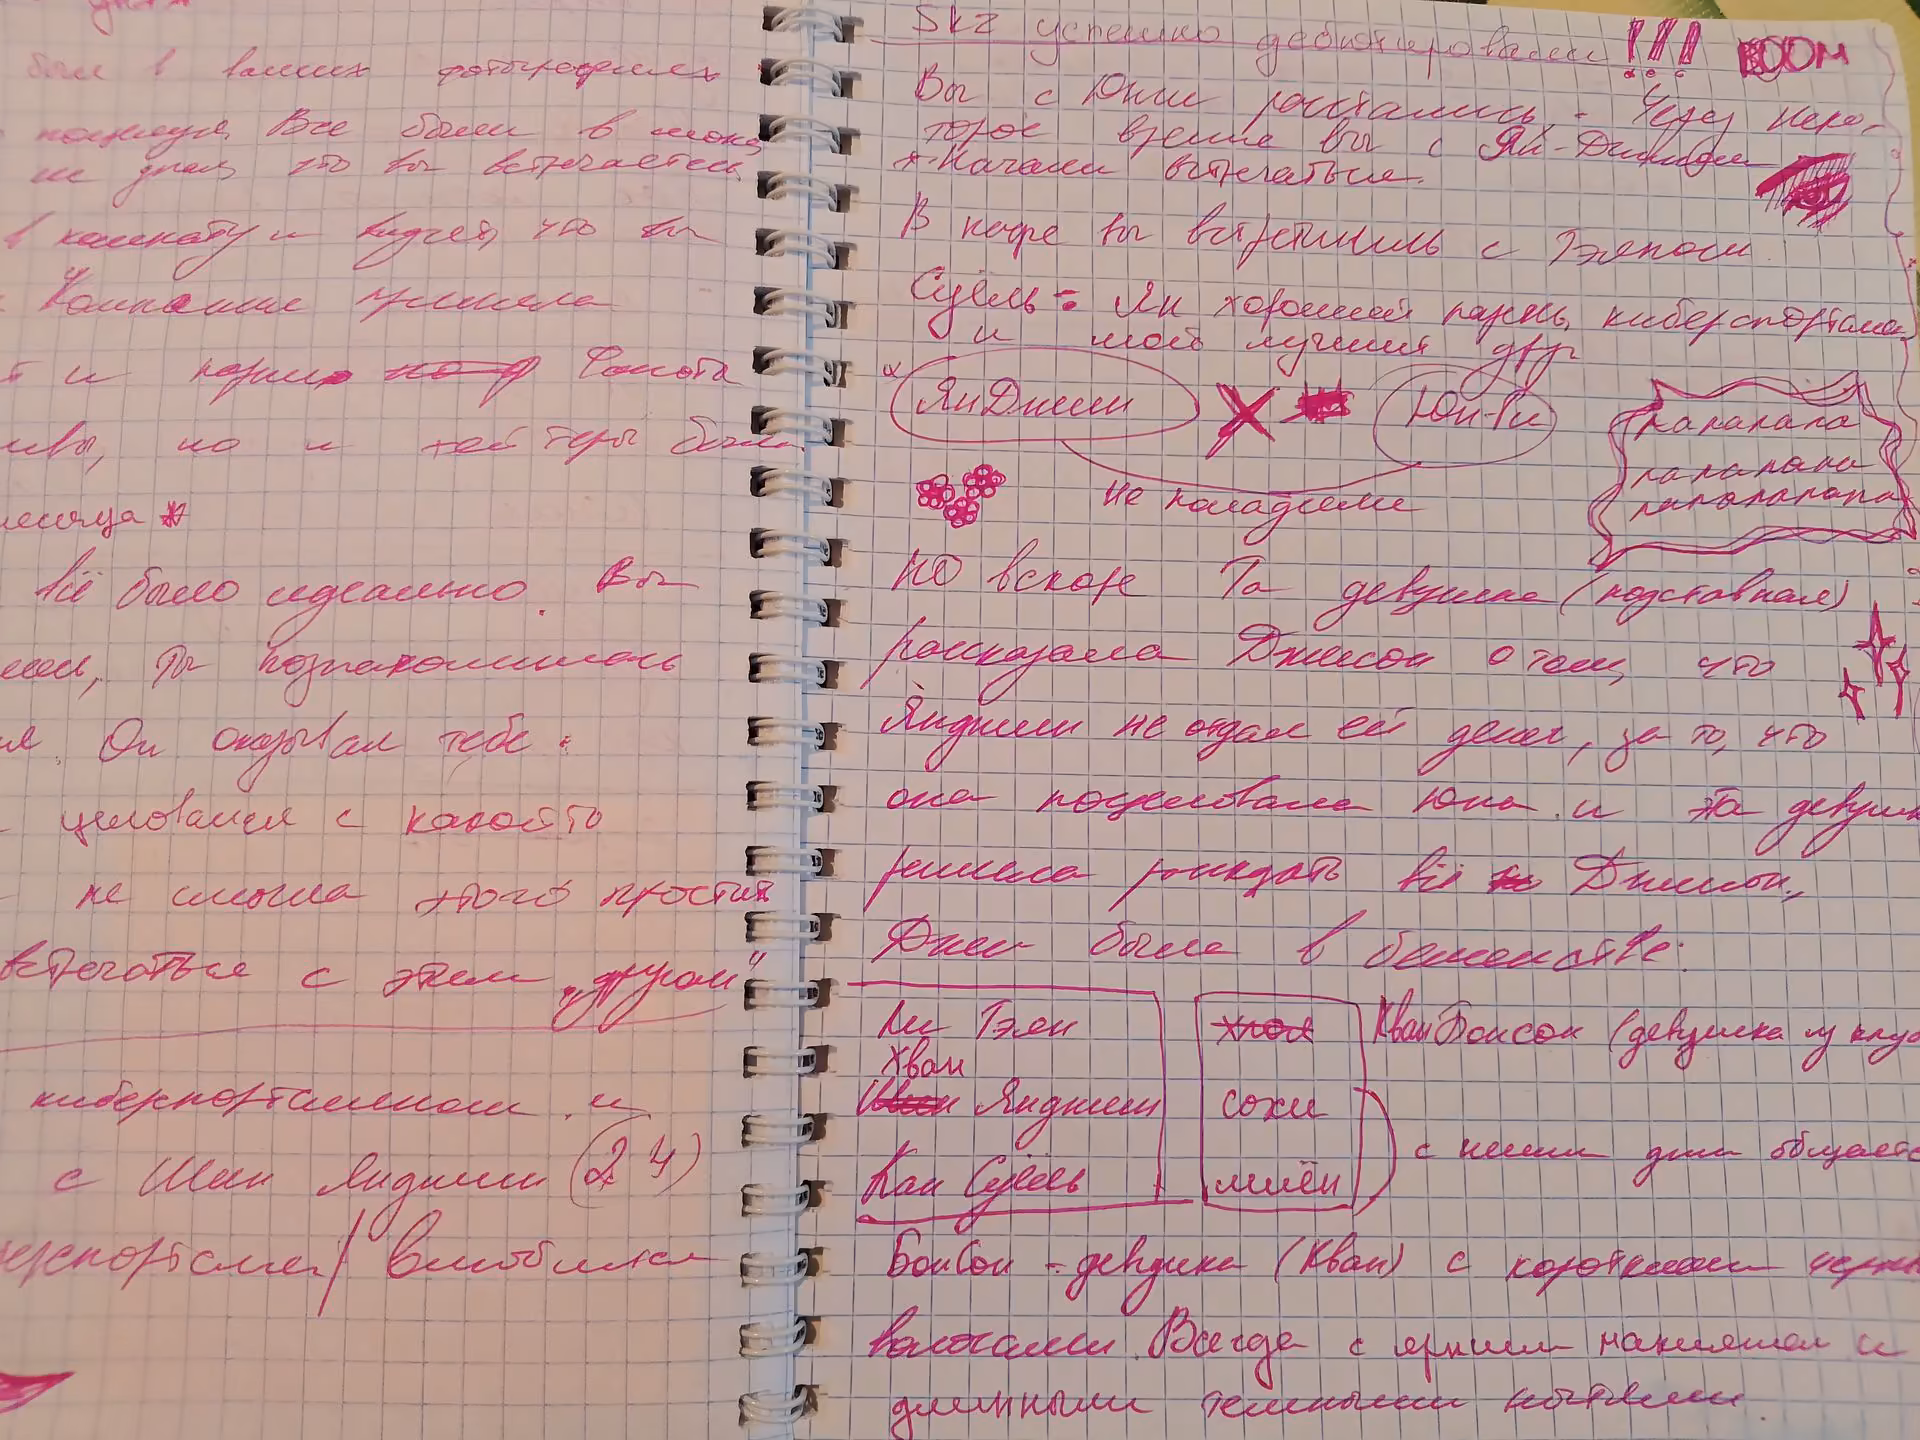 были в ваших фотографиях
поцелуя. Все были в шоке,
не знал, что вы встречаетесь
в комнату и видит, что вы
Компания приняла
т и парни Фанота
но и хейтеры были
месяца
всё было идеально. Вы
ты познакомилась
Он оказывал тебе
целовался с какой-то
не смогла этого простить
встречаться с этим „другом"
киберспортсменом и
с Шин Янджим (24)
ерспортсмен/ влюбился
SKZ успешно дебютировали!!! BOOM
Вы с Юнги расстались. Через неко-
торое время вы с Ян-Джимом
начали встречаться.
В кафе вы встретились с Тэяном
Суёль: Ян хороший парень, киберспортсмен
и мой лучший друг
ЯнДжим X Юн-Ги
папапапа
папапапа
папапапапа
Не поладили
НО вскоре Та девушка (подставная)
рассказала Джисои о том, что
Янджим не отдал ей денег, за то, что
она поцеловала Юна и эта девушк
решила рассказать всё Джисои,
Джи была в бешенстве:
Ли Тэян
Хван
Янджим
Кан Суёль
хлоя
сохи
миён
Кван Бонсои (девушка из клуб
с ними джи общаетс
БонСои - девушка (Кван) с короткими черн
волосами. Всегда с ярким макияжем и
длинными темными ногтями